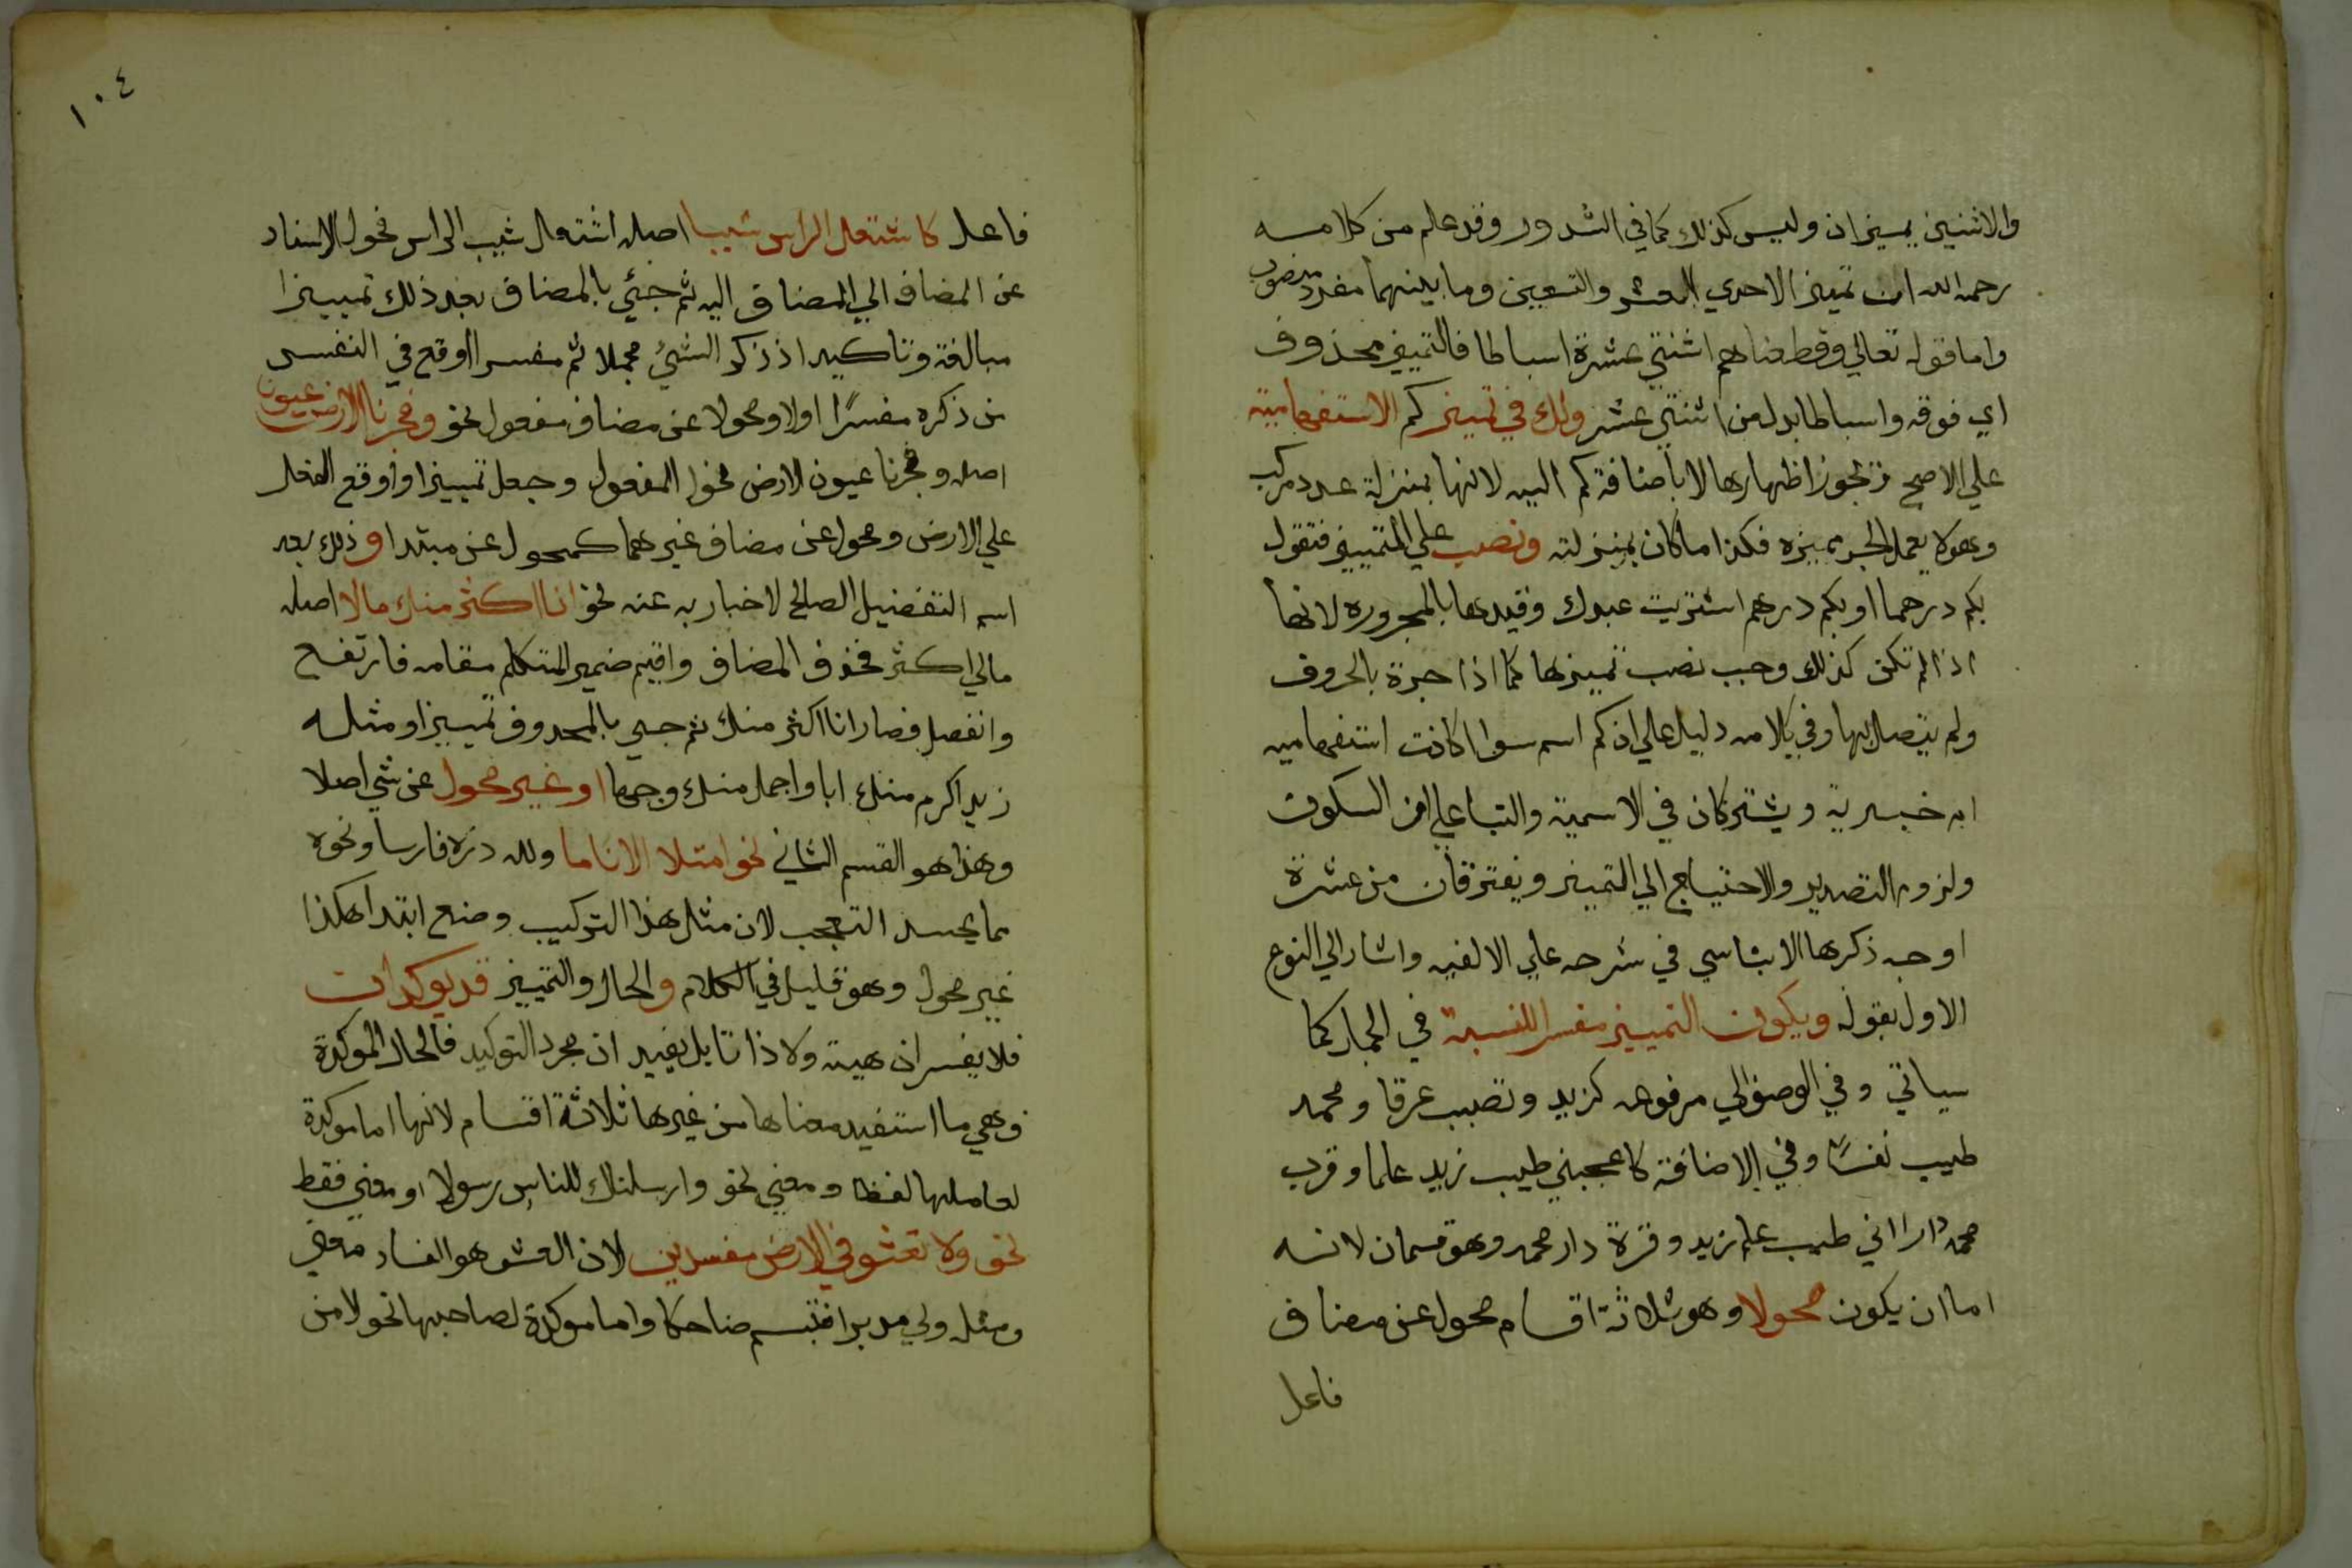 والاثنين يميزان وليس كذلك كما في الشدور وقد علم من كلامه
رحمه الله ان تميز الاحدي العشر والتسعين وما بينهما مفرد منصوب
واما قوله تعالي وقطعناهم اثنتي عشرة اسباطا فالتمييز محذوف
اي فوقه واسباطا بدل من اثنتي عشر ولك في تمييز كم الاستفهامية
علي الاصح تجوز اظهارها لا باضافة كم اليه لانها بمنزلة عدد مركب
وهو لا يعمل الجر بميزه فكذا ما كان بمنزلته ونصب علي التمييز فتقول
بكم درهما او بكم درهم اشتريت عبدك وقيدها بالمجروره لانها
اذا لم تكن كذلك وجب نصب تمييزها كما اذا جرة بالحروف
ولم يتصل بها وفي كلامه دليل علي ان كم اسم سوا كانت استفهاميه
ام خبرية ويشتركان في الاسمية والبنا علي السكون
ولزوم التصدير والاحتياج الي التمييز ويفترقان من عشرة
اوجه ذكرها الابناسي في شرحه علي الالفيه واشار الي النوع
الاول بقوله ويكون التمييز مفسرا للنسبة في الجمل كما
سياتي وفي الوصف الي مرفوعه كزيد وتصبب عرقا ومحمد
طيب نفسًا وفي الاضافة كاعجبني طيب زيد علما وقرب
محمد دارا اني طيب علم زيد وقرة دار محمد وهو قسمان لانه
اما ان يكون محولا وهو ثلاثة اقسام محول عن مضاف
فاعل
١٠٤
فاعل كاشتعل الراس شيبا اصله اشتعال شيب الراس فحول الاسناد
عن المضاف الي المضاف اليه ثم جئي بالمضاف بعد ذلك تمييزا
مبالغة وتاكيدا اذ ذكر الشئ مجملا ثم مفسرا اوقع في النفس
من ذكره مفسرًا اولا ومحولا عن مضاف مفعول نحو وفجرنا الارض عيون
اصله وفجرنا عيون الارض فحول المفعول وجعل تمييزا واوقع الفعل
علي الارض ومحول عن مضاف غيرهما كمحول عن مبتدا وذلك بعد
اسم التفضيل الصالح لاخبار به عنه نحو انا اكثر منك مالا اصله
مالي اكثر فحذف المضاف واقيم ضمير المتكلم مقامه فارتفع
وانفصل فصار انا اكثر منك ثم جيي بالمحدوف تمييزا ومثله
زيد اكرم منك ابا واجمل منك وجها او غير محول عن شي اصلا
وهذا هو القسم الثاني نحو امتلا الانا ما ولله دره فارسا ونحوه
مما يحسد التعجب لان مثل هذا التركيب وضع ابتدا هكذا
غير محول وهو قليل في الكلام والحال والتمييز قد يوكدان
فلا يفسران هيئة ولا ذاتا بل يفيد ان مجرد التوكيد فالحال الموكدة
وهي ما استفيد معناها من غيرها ثلاثة اقسام لانها اما موكدة
لعاملها لفظا ومعني نحو وارسلناك للناس رسولا او معني فقط
نحو ولا تعثو في الارض مفسدين لان العشو هو الفساد معني
ومثله ولي مدبرا فتبسم ضاحكا واما موكدة لصاحبها نحو لامن